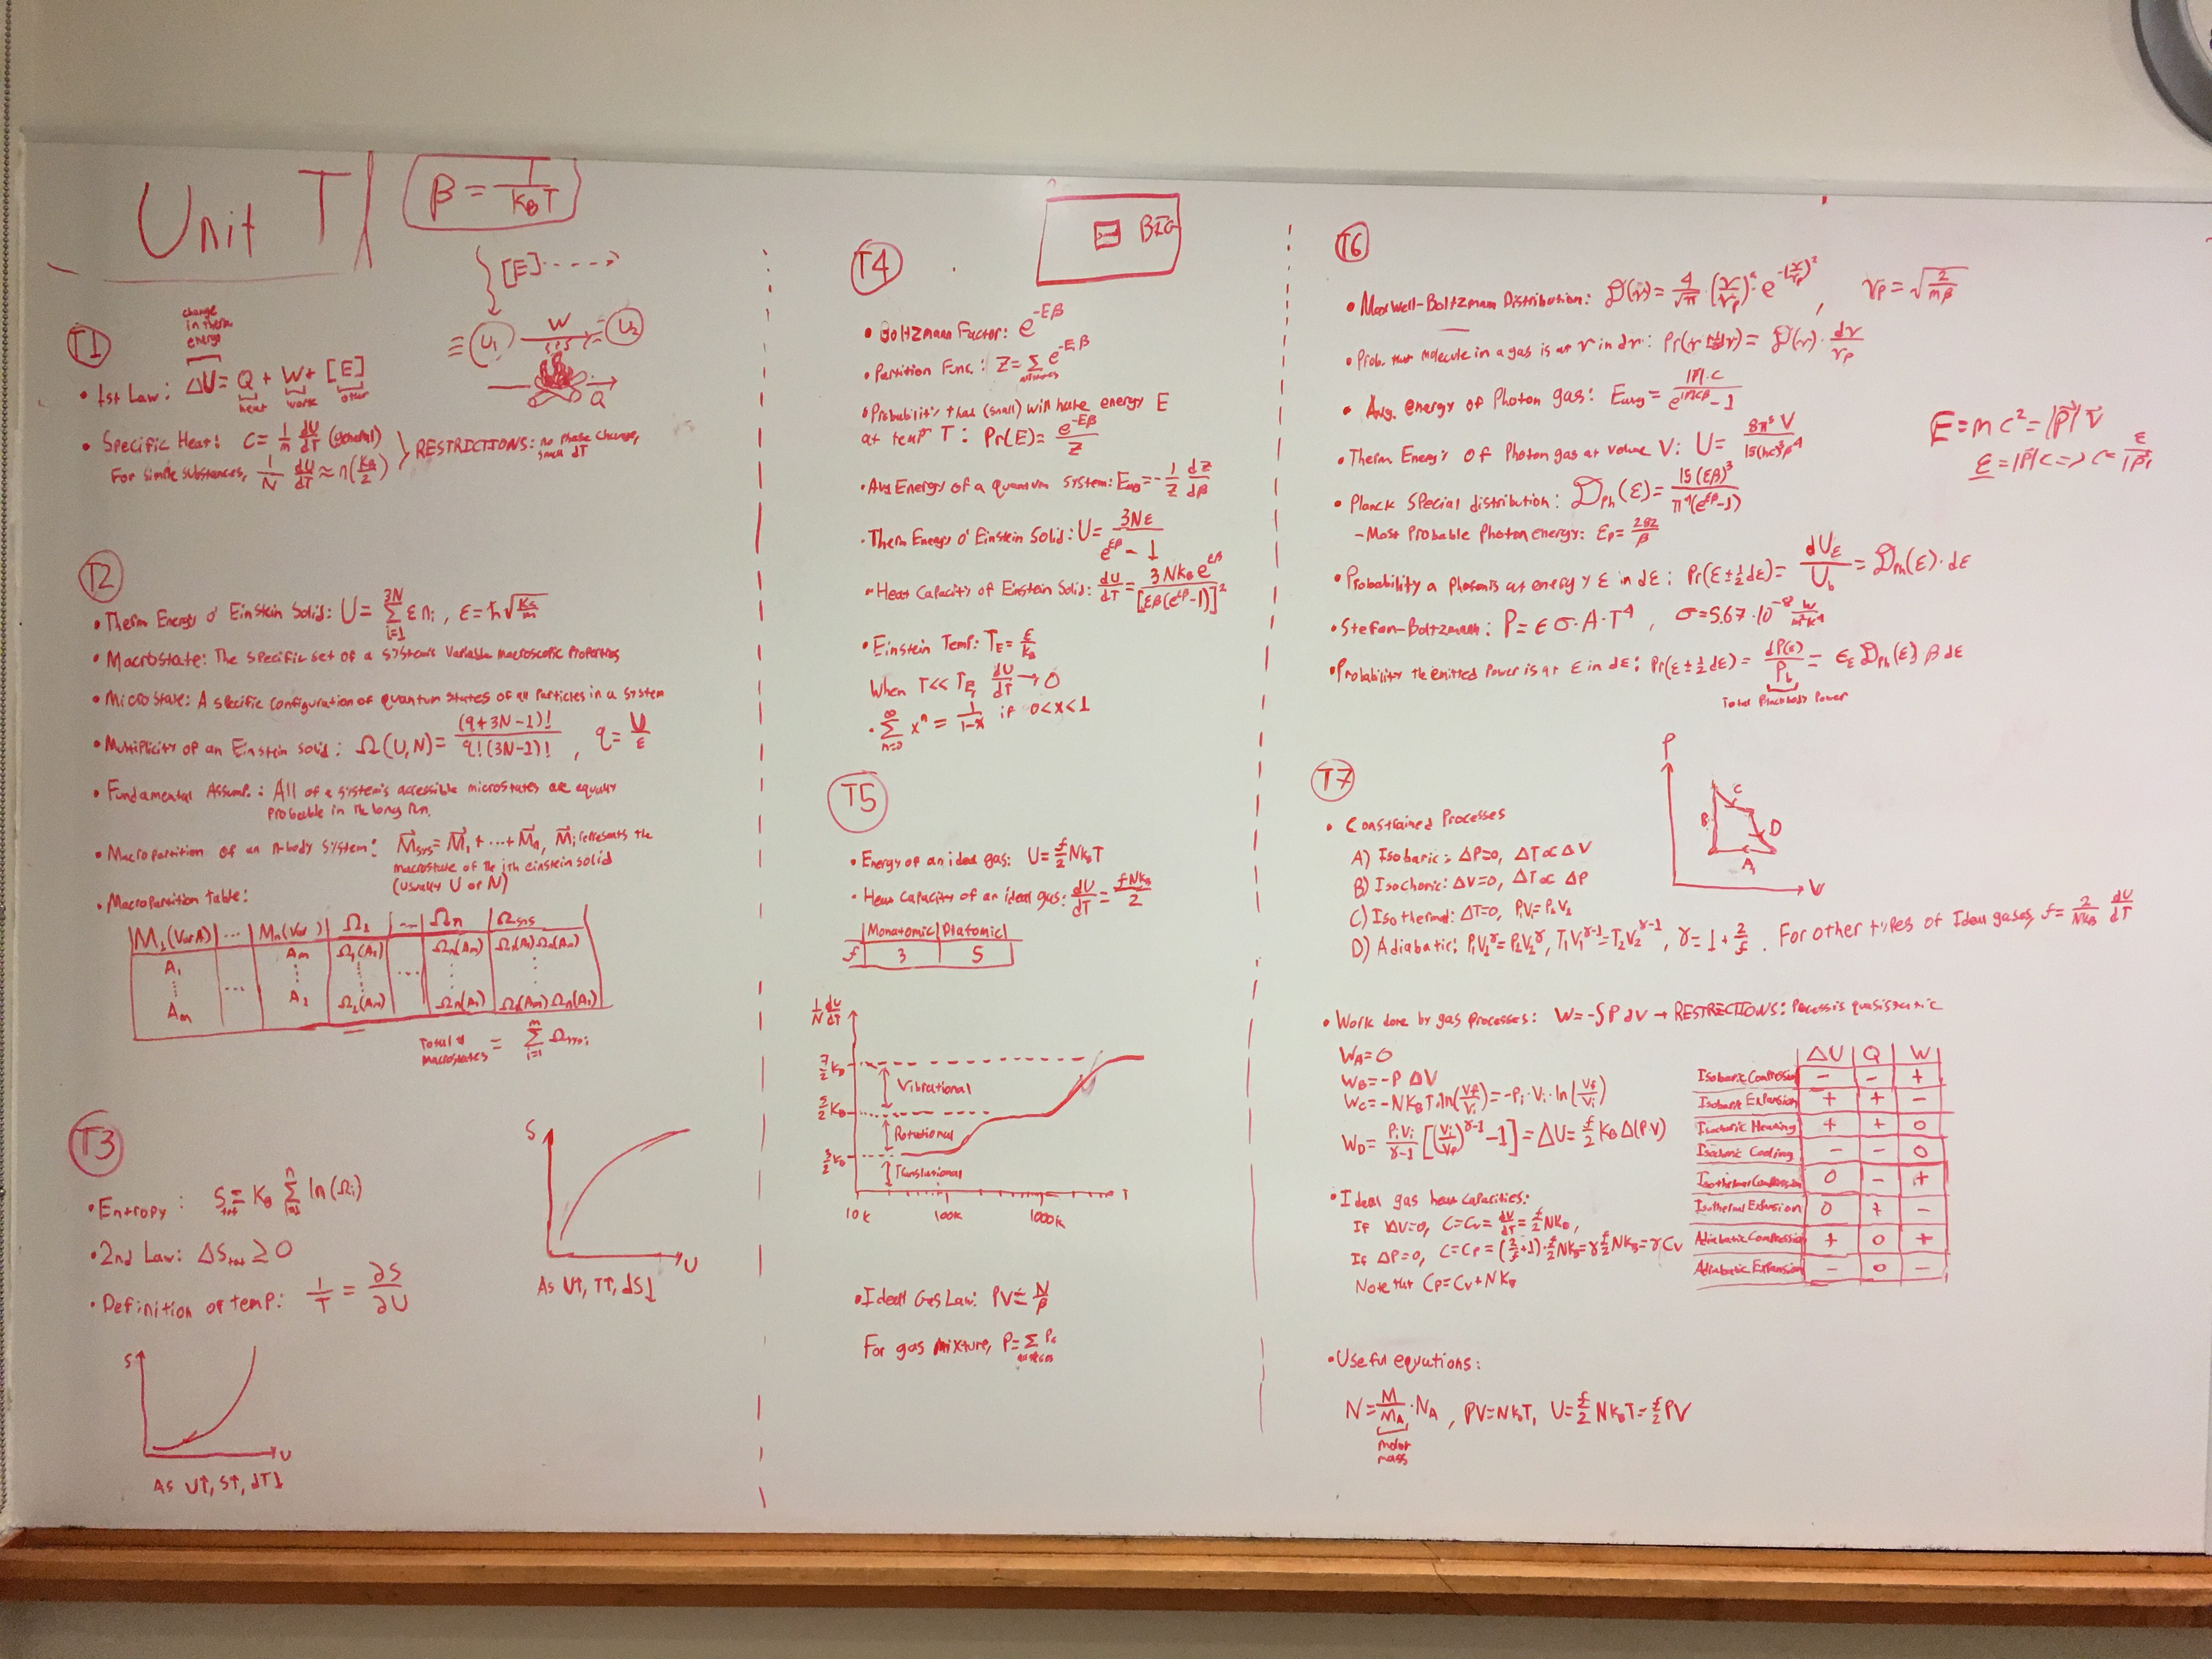 Unit T
β = 1/(k_B T)
[E] ····>
T1
change in therm energy
• 1st Law: ΔU = Q + W + [E]
heat work other
≡ U₁ W U₂
Q
• Specific Heat: c = (1/m) dU/dT (general)
For simple substances, (1/N) dU/dT ≈ n(k_B/2)
} RESTRICTIONS: no phase change, small dT
T2
• Therm Energy o' Einstein Solid: U = Σ_{i=1}^{3N} ε n_i , ε = ħ√(k_s/m)
• Macrostate: The specific set of a system's variable macroscopic properties
• Microstate: A specific configuration of quantum states of all particles in a system
• Multiplicity of an Einstein solid: Ω(U,N) = (q+3N-1)!/(q!(3N-1)!) , q = U/ε
• Fundamental Assump.: All of a system's accessible microstates are equally
probable in the long run.
• Macropartition of an n-body system: M⃗_sys = M⃗₁ + ··· + M⃗_n, M⃗_i represents the
macrostate of the ith einstein solid
(usually U or N)
• Macropartition Table:
M₁(Var A) ... M_n(Var ) Ω₁ ... Ω_n Ω_sys
A₁ A_m Ω₁(A₁) Ω_n(A_m) Ω₁(A₁)Ω_n(A_m)
... ...
A_m A₁ Ω₁(A_m) Ω_n(A₁) Ω₁(A_m)Ω_n(A₁)
Total # macrostates = Σ_{i=1}^{m} Ω_sys,i
T3
• Entropy: S_tot = k_B Σ_{i=1}^{n} ln(Ω_i)
• 2nd Law: ΔS_tot ≥ 0
• Definition of temp: 1/T = ∂S/∂U
S
U
As U↑, T↑, dS↓
S
U
As U↑, S↑, dT↓
T4
BIG
• Boltzmann Factor: e^{-Eβ}
• Partition Func.: Z = Σ e^{-Eβ}
• Probability that (small) will have energy E
at temp T: Pr(E) = e^{-Eβ}/Z
• Avg Energy of a quantum system: E_avg = -(1/Z) dZ/dβ
• Therm Energy o' Einstein Solid: U = 3Nε/(e^{εβ} - 1)
• Heat Capacity of Einstein Solid: dU/dT = 3Nk_B e^{εβ}/[εβ(e^{εβ}-1)]²
• Einstein Temp: T_E = ε/k_B
When T << T_E, dU/dT → 0
• Σ_{n=0}^{∞} xⁿ = 1/(1-x) if 0<x<1
T5
• Energy of an ideal gas: U = (f/2) N k_B T
• Heat capacity of an ideal gas: dU/dT = f N k_B/2
Monatomic Diatomic
f 3 5
(1/N) dU/dT
7/2 k_B
Vibrational
5/2 k_B
Rotational
3/2 k_B
Translational
T
10K 100K 1000K
• Ideal Gas Law: PV = N/β
For gas mixture, P = Σ P_i
T6
• Maxwell-Boltzmann Distribution: 𝒟(v) = (4/√π)·(v/v_p)² e^{-(v/v_p)²} , v_p = √(2/(mβ))
• Prob. that molecule in a gas is at v in dv: Pr(v ± ½dv) = 𝒟(v)·dv/v_p
• Avg. energy of Photon gas: E_avg = |p⃗|·c/(e^{|p⃗|cβ} - 1)
• Therm Energy of Photon gas at volume V: U = 8π⁵V/(15(hc)³β⁴)
• Planck Special distribution: 𝒟_ph(ε) = 15(εβ)³/(π⁴(e^{εβ}-1))
- Most Probable Photon energy: ε_p = 2.82/β
• Probability a Photon is at energy ε in dε: Pr(ε ± ½dε) = dU_ε/U_b = 𝒟_ph(ε)·dε
• Stefan-Boltzmann: P = ε σ·A·T⁴ , σ = 5.67·10⁻⁸ W/m²K⁴
• Probability the emitted Power is at ε in dε: Pr(ε ± ½dε) = dP(ε)/P_b = ε_ε 𝒟_ph(ε) β dε
Total Blackbody Power
E = mc² = |p⃗| v⃗
ε = |p⃗|c => c = ε/|p⃗|
T7
P
V
A
B
C
D
• Constrained Processes
A) Isobaric: ΔP=0, ΔT ∝ ΔV
B) Isochoric: ΔV=0, ΔT ∝ ΔP
C) Isothermal: ΔT=0, P₁V₁=P₂V₂
D) Adiabatic: P₁V₁^γ = P₂V₂^γ, T₁V₁^{γ-1} = T₂V₂^{γ-1}, γ = 1 + 2/f. For other types of ideal gases, f = (2/(Nk_B)) dU/dT
• Work done by gas processes: W = -∫P dV → RESTRICTIONS: Process is quasistatic
W_A = 0
W_B = -P ΔV
W_C = -N k_B T·ln(V_f/V_i) = -P_i·V_i·ln(V_f/V_i)
W_D = (P_i V_i/(γ-1)) [(V_i/V_f)^{γ-1} - 1] = ΔU = (f/2) k_B Δ(P·V)
ΔU Q W
Isobaric Compression - - +
Isobaric Expansion + + -
Isochoric Heating + + 0
Isochoric Cooling - - 0
Isothermal Compression 0 - +
Isothermal Expansion 0 + -
Adiabatic Compression + 0 +
Adiabatic Expansion - 0 -
• Ideal gas heat capacities:
If ΔV=0, C = C_V = dU/dT = (f/2)Nk_B,
If ΔP=0, C = C_P = (2/f+1)·(f/2)Nk_B = γ(f/2)Nk_B = γC_V
Note that C_P = C_V + Nk_B
• Useful equations:
N = (M/M_A)·N_A , PV = Nk_BT, U = (f/2)Nk_BT = (f/2)PV
molar mass